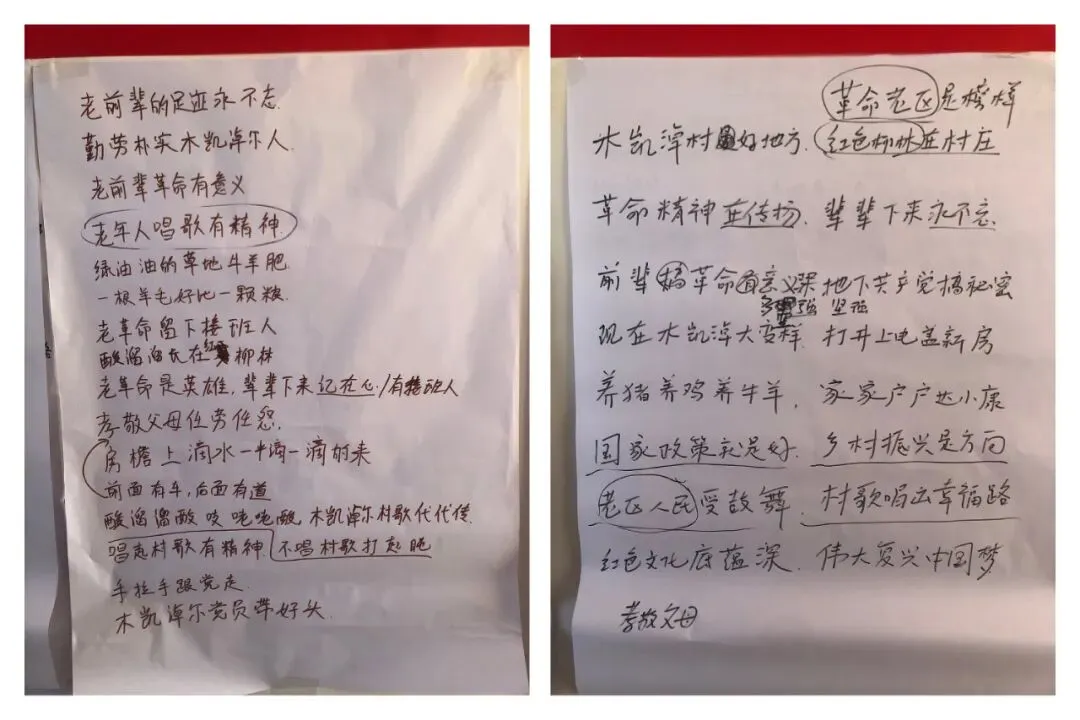 老前辈的足迹永不忘.
勤劳朴实木凯淖尔人.
老前辈革命有意义
老年人唱歌有精神.
绿油油的草地牛羊肥.
一根羊毛好比一颗粮.
老革命留下接班人
酸溜溜长在红柳林
老革命是英雄,辈辈下来记在心/有接班人
孝敬父母任劳任怨.
房檐上滴水一滴一滴的来
前面有车,后面有道
酸溜溜酸 咾咾酸,木凯淖尔村歌代代传.
唱起村歌有精神 不唱村歌打起盹
手拉手跟党走.
木凯淖尔党员带好头.
革命老区是榜样
木凯淖村好地方.红色柳林在村庄
革命精神在传扬.辈辈下来永不忘.
前辈搞革命 地下共产党搞秘密
坚强
现在木凯淖大变样.打井上电盖新房
养猪养鸡养牛羊,家家户户达小康
国家政策就是好.乡村振兴是方向
老区人民受鼓舞.村歌唱出幸福路
红色文化底蕴深.伟大复兴中国梦
孝敬父母